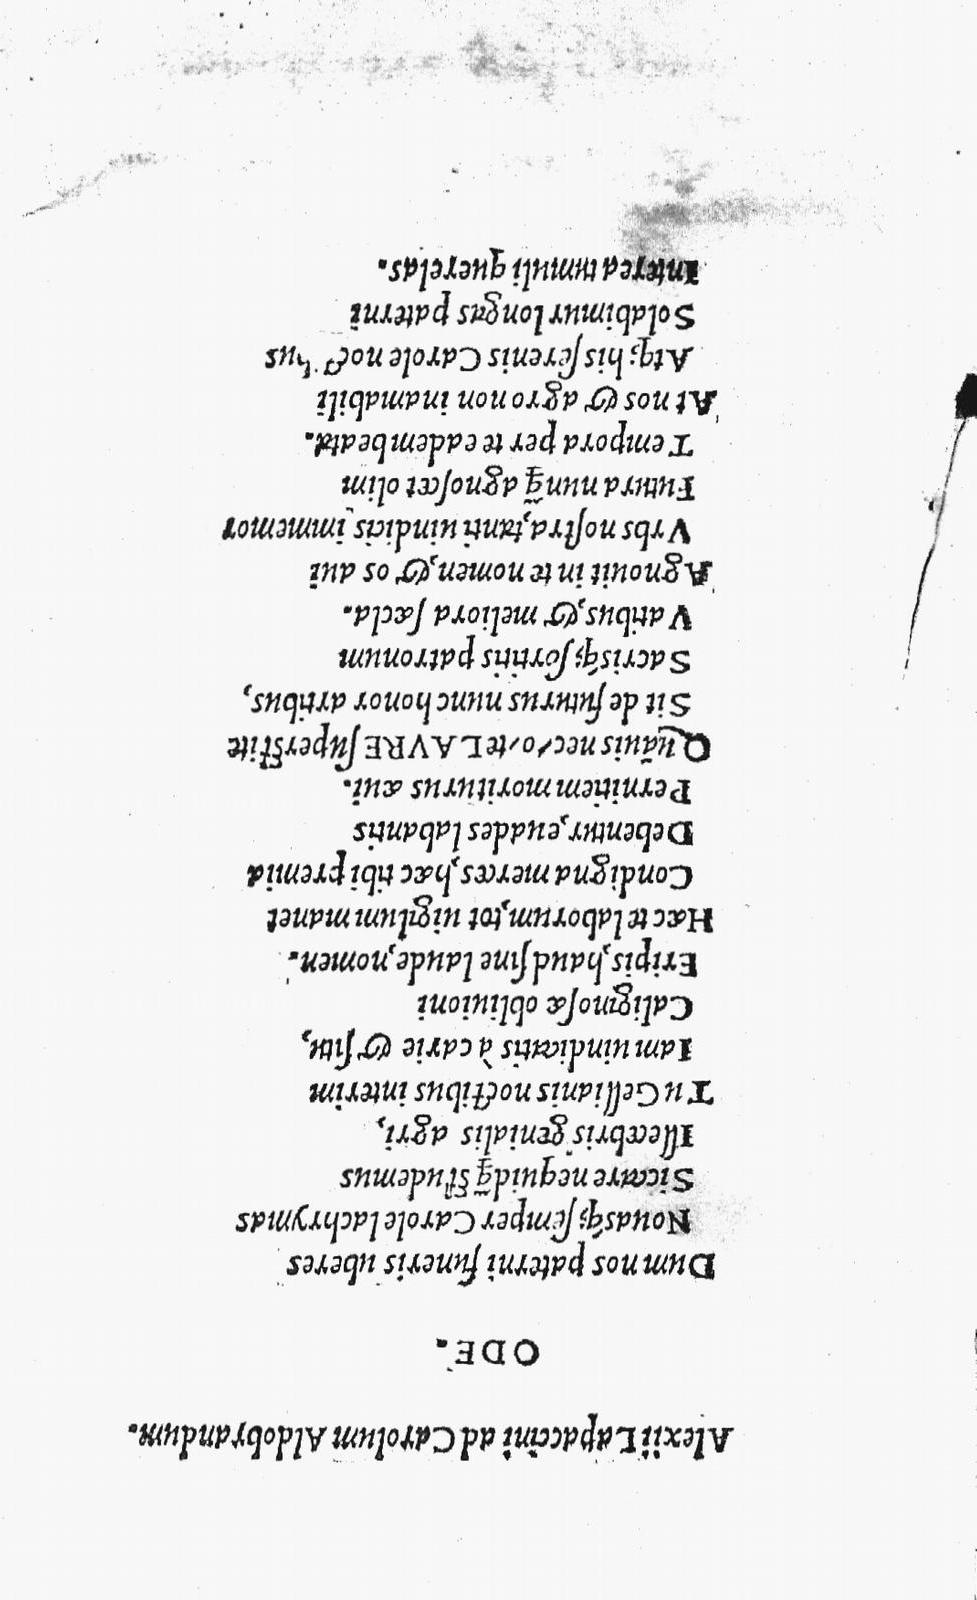 Alexii Lapaccini ad Carolum Aldobrandum.
ODE.
Dum nos paterni funeris uberes
Nouasq́; semper Carole lachrymas
Siccare nequidq̃ studemus
Illecebris genialis agri,
Tu Gellianis noctibus interim
Iam uindicatis à carie & situ,
Caliginosæ obliuioni
Eripis, haud sine laude, nomen.
Hæc te laborum, tot uigilum manet
Condigna merces, hæc tibi premia
Debentur, euades labantis
Perniciem morituras æui.
Quãuis nec, o, te LAVRE superstite
Sit de futurus nunc honor artibus,
Sacrisq́; sortitis patronum
Vatibus, & meliora sæcla.
Agnouit in te nomen, & os aui
Vrbs nostra, tanti uindicis immemor
Futura nunq̃ agnoscet olim
Tempora per te eadem beata.
At nos & agro non inamabili
Atq; his serenis Carole noct'bus
Solabimur longas paterni
Interea tumuli querelas.